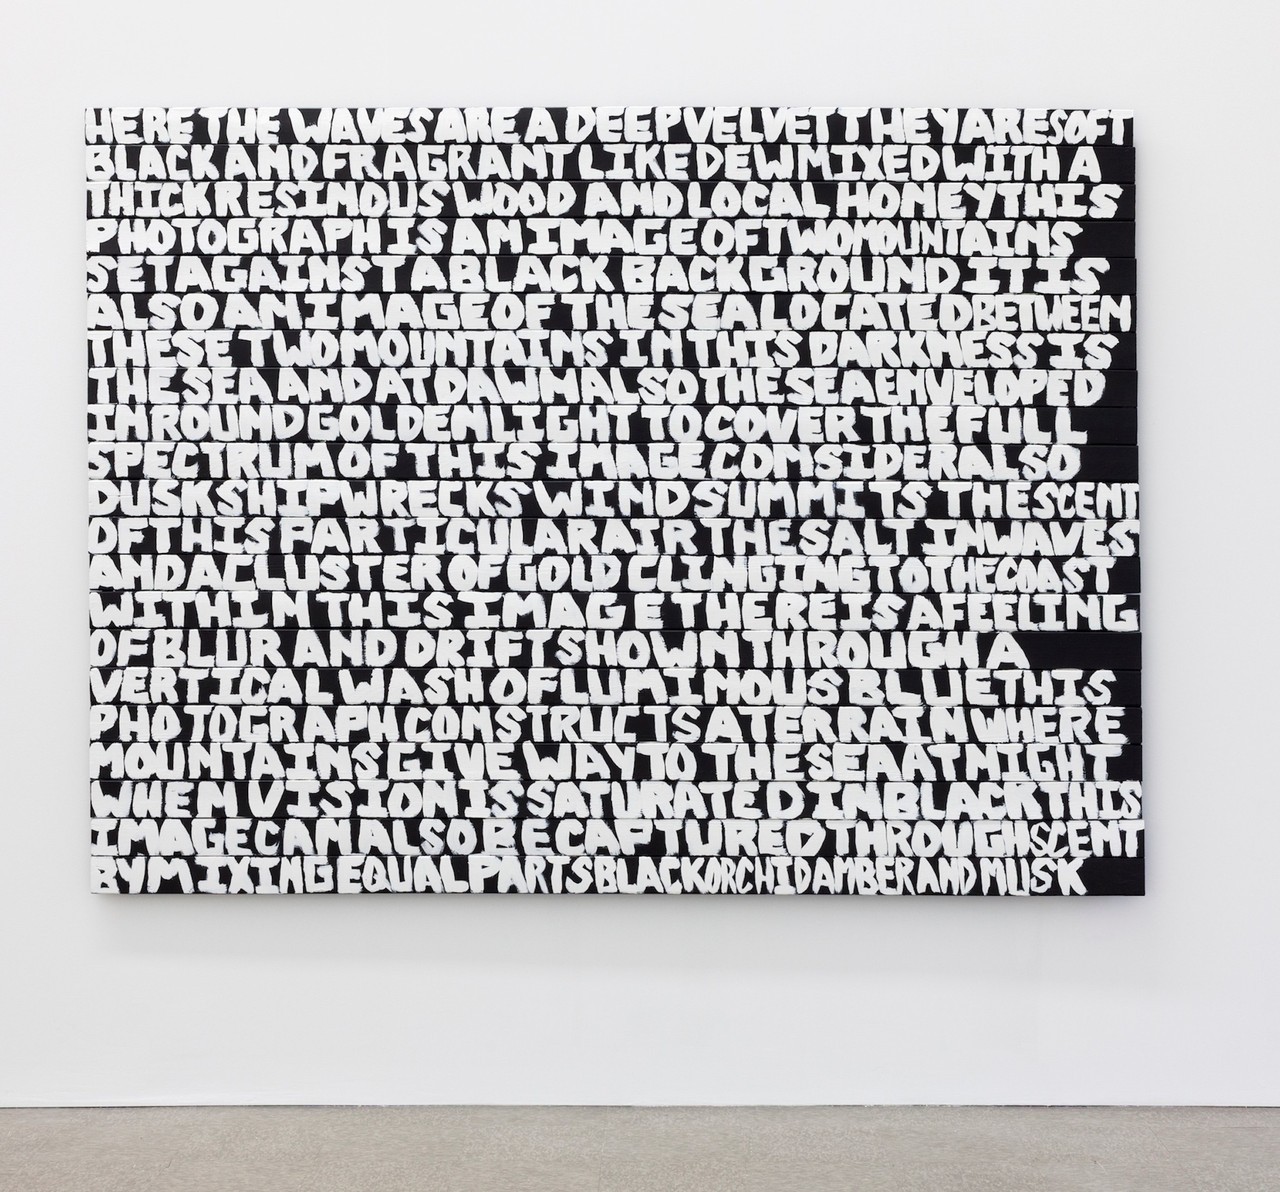 HERE THE WAVES ARE A DEEP VELVET THEY ARE SOFT
BLACK AND FRAGRANT LIKE DEW MIXED WITH A
THICK RESINOUS WOOD AND LOCAL HONEY THIS
PHOTOGRAPH IS AN IMAGE OF TWO MOUNTAINS
SET AGAINST A BLACK BACKGROUND IT IS
ALSO AN IMAGE OF THE SEA LOCATED BETWEEN
THESE TWO MOUNTAINS IN THIS DARKNESS IS
THE SEA AND AT DAWN ALSO THE SEA ENVELOPED
IN ROUND GOLDEN LIGHT TO COVER THE FULL
SPECTRUM OF THIS IMAGE CONSIDER ALSO
DUSK SHIPWRECKS WIND SUMMITS THE SCENT
OF THIS PARTICULAR AIR THE SALT IN WAVES
AND A CLUSTER OF GOLD CLINGING TO THE COAST
WITHIN THIS IMAGE THERE IS A FEELING
OF BLUR AND DRIFT SHOWN THROUGH A
VERTICAL WASH OF LUMINOUS BLUE THIS
PHOTOGRAPH CONSTRUCTS A TERRAIN WHERE
MOUNTAINS GIVE WAY TO THE SEA AT NIGHT
WHEN VISION IS SATURATED IN BLACK THIS
IMAGE CAN ALSO BE CAPTURED THROUGH SCENT
BY MIXING EQUAL PARTS BLACK ORCHID AMBER AND MUSK